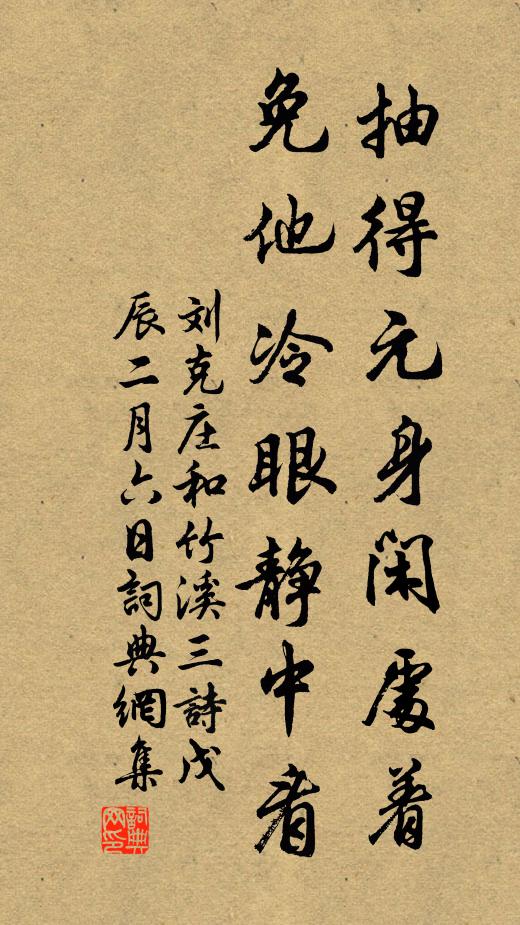 抽得元身閑處着
免他冷眼静中看
刘克庄和竹溪三詩戊
辰二月六日詞典網集
詞典网印